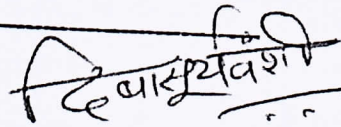 दिबासूर्यवंशी